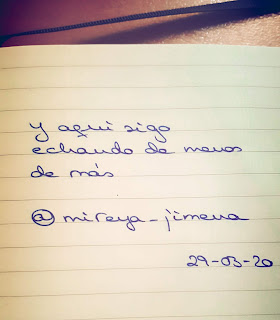 y aqui sigo
echando de menos
de más
@mireya_jimena
29-03-20